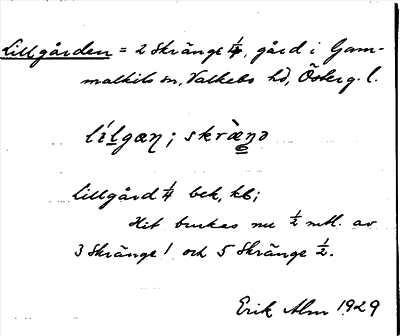 Lillgården = 2 Skränge 1/4, gård i Gam-
malkils sn, Valkebo hd, Österg. l.
lílgæɳ; skræ̀ŋə
Lillgård 1/4 bek, kb;
Hit brukas nu 1/2 mtl. av
3 Skränge 1 och 5 Skränge 1/2.
Erik Alm 1929